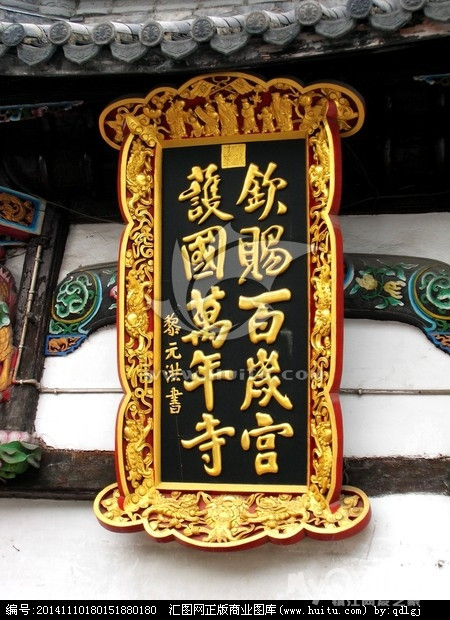 欽賜百歲宮
護國萬年寺
黎元洪書
www.huitu.com
编号: 20141110180151880180 汇图网正版商业图库 (www.huitu.com) by:qdlgj